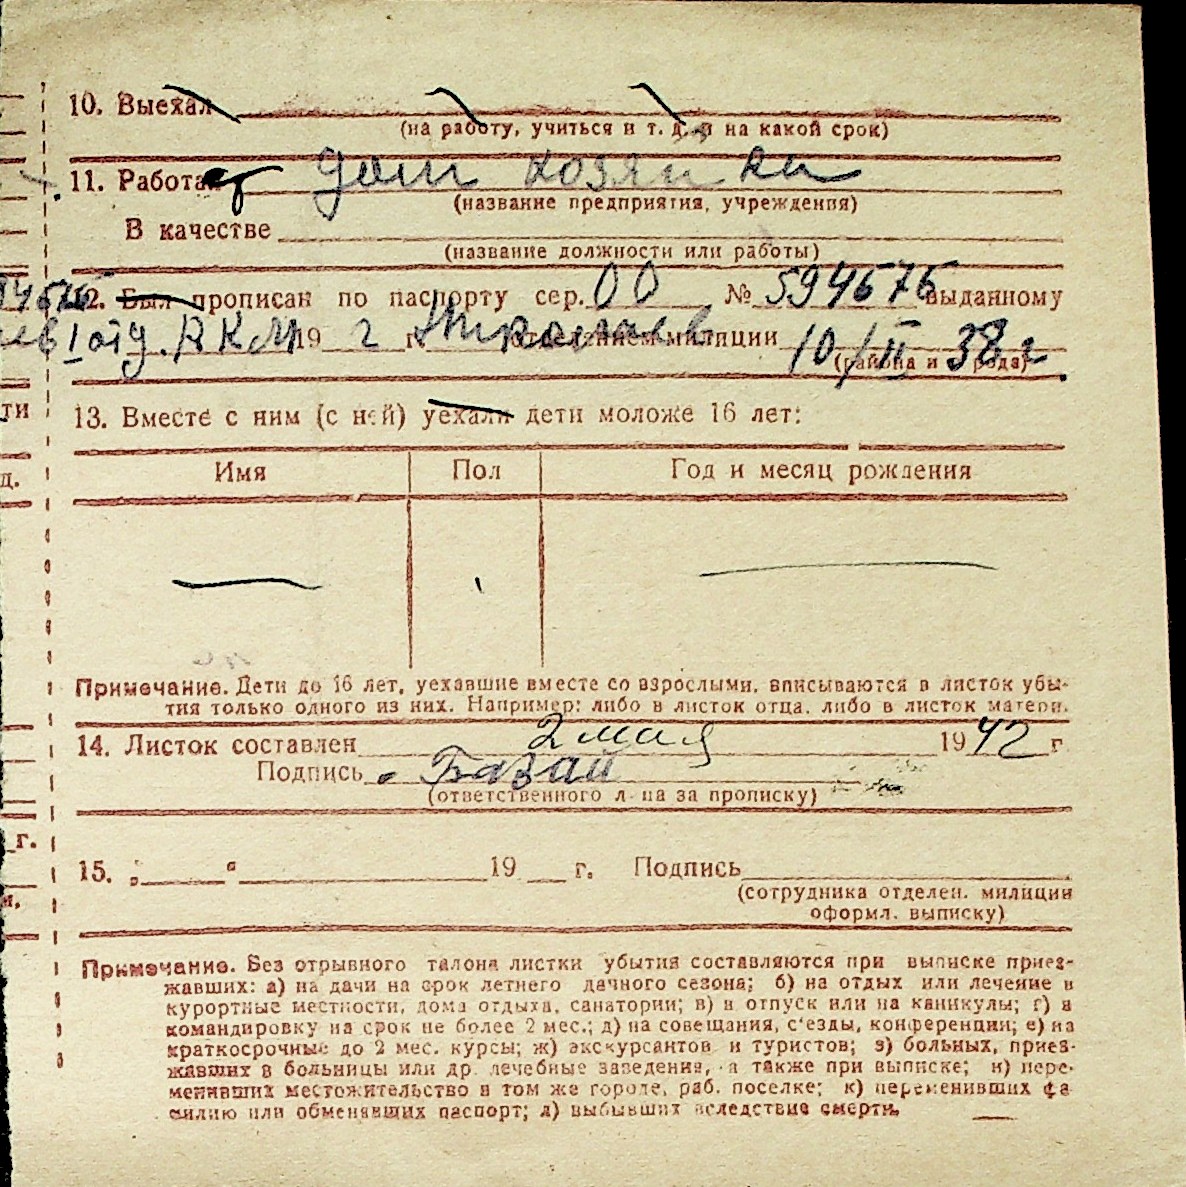 10. Выехал
(на работу, учиться и т. д. и на какой срок)
11. Работает дом хозяйки
(название предприятия, учреждения)
В качестве
(название должности или работы)
12. Был прописан по паспорту сер. 00 № 594676 выданному
I отд. РКМ 19 г. Николаев отделением милиции 10/II 38 г.
(района и города)
13. Вместе с ним (с ней) уехали дети моложе 16 лет:
Имя Пол Год и месяц рождения
Примечание. Дети до 16 лет, уехавшие вместе со взрослыми, вписываются в листок убы-
тия только одного из них. Например: либо в листок отца, либо в листок матери.
14. Листок составлен 2 мая 1942 г
Подпись Базай
(ответственного л-ца за прописку)
15. „ “ 19 г. Подпись
(сотрудника отделен. милиции
оформл. выписку)
Примечание. Без отрывного талона листки убытия составляются при выписке приез-
жавших: а) на дачи на срок летнего дачного сезона; б) на отдых или лечение в
курортные местности, дома отдыха, санатории; в) в отпуск или на каникулы; г) в
командировку на срок не более 2 мес.; д) на совещания, с'езды, конференции; е) на
краткосрочные до 2 мес. курсы; ж) экскурсантов и туристов; з) больных, приез-
жавших в больницы или др. лечебные заведения, а также при выписке; и) пере-
менивших местожительство в том же городе, раб. поселке; к) переменивших фа-
милию или обменявших паспорт; л) выбывших вследствие смерти.